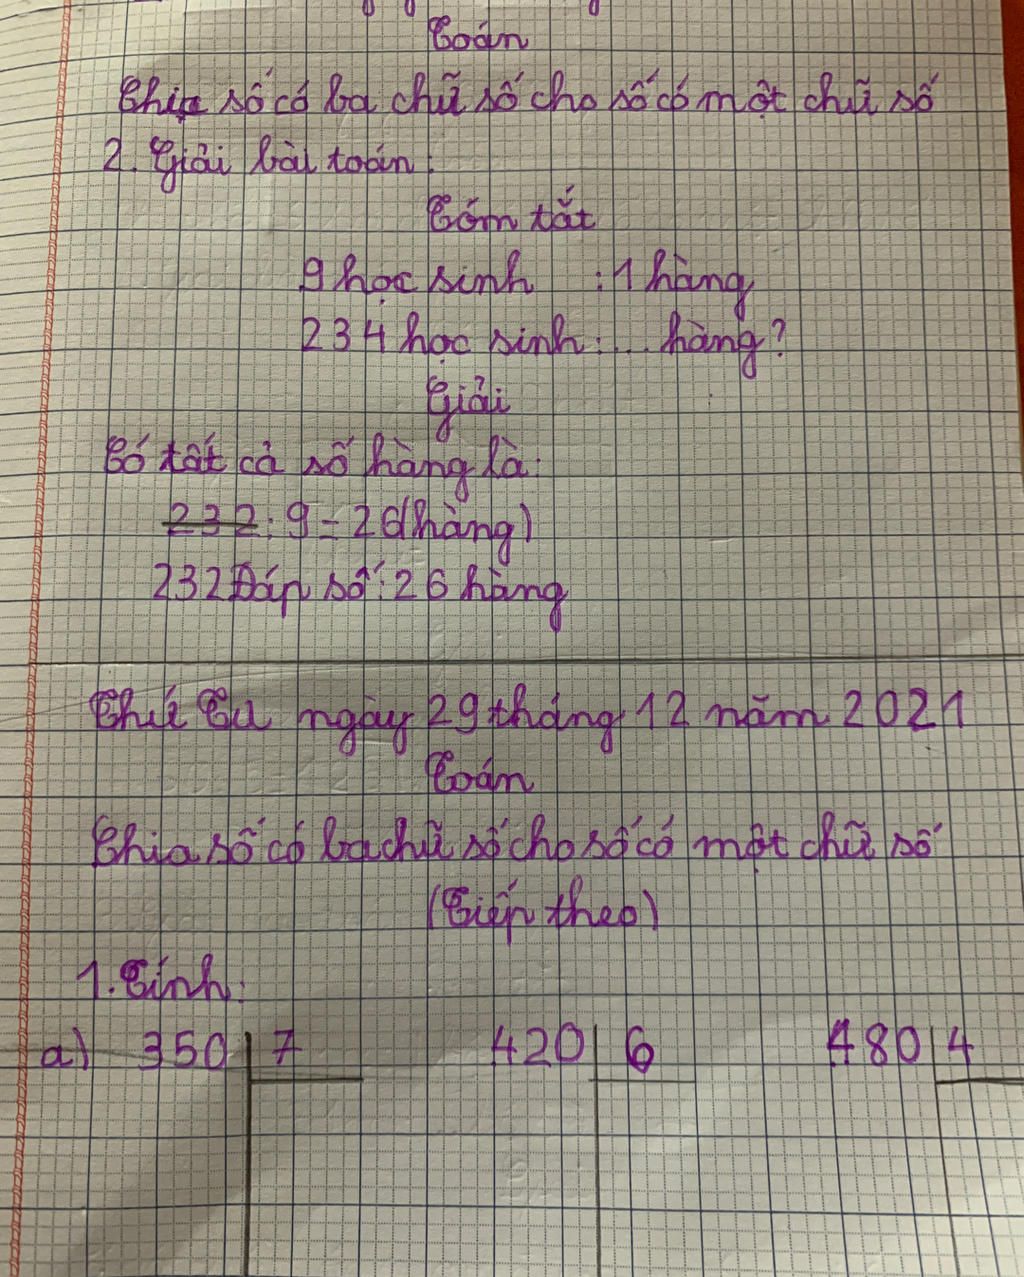 Toán
Chia số có ba chữ số cho số có một chữ số
2. Giải bài toán:
Tóm tắt
9 học sinh : 1 hàng
234 học sinh: ... hàng?
Giải
Có tất cả số hàng là:
232 : 9 = 26 (hàng)
232 Đáp số: 26 hàng
Thứ Tư ngày 29 tháng 12 năm 2021
Toán
Chia số có ba chữ số cho số có một chữ số
(Tiếp theo)
1. Tính:
a) 350 7 420 6 480 4